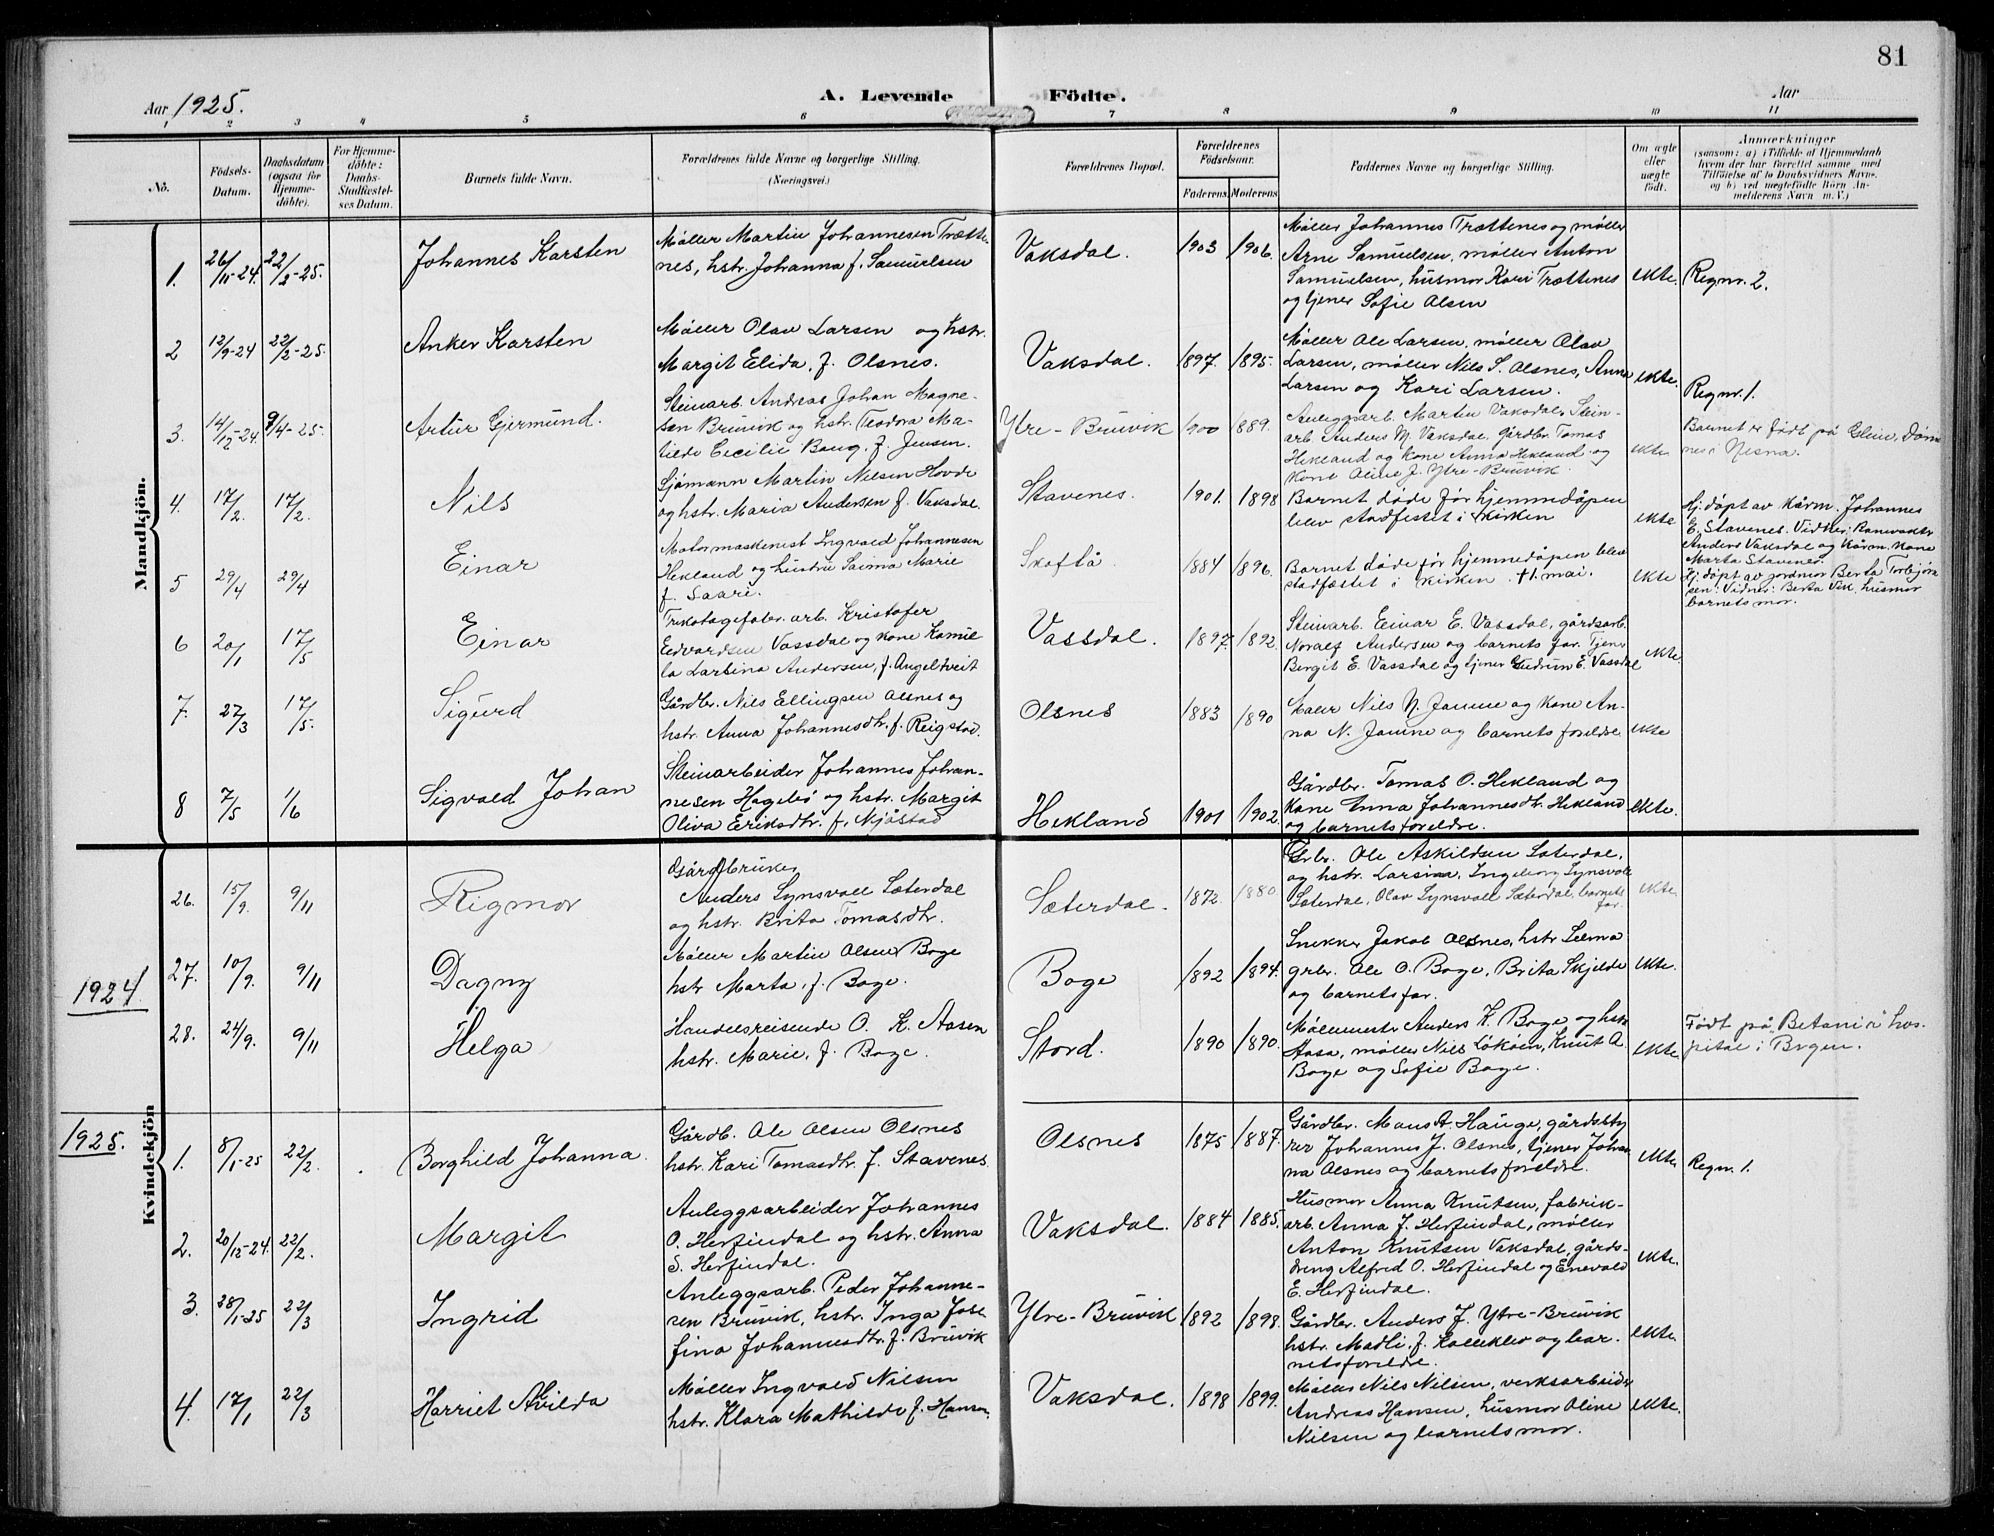 81
Aar 1925.
A. Levende Födte.
Aar
1 2 3 4 5 6 7 8 9 10 11
No.
Födsels-Datum.
Daabsdatum (ogsaa for Hjemme-döbte).
For Hjemme-döbte: Daabs-Stadfæstel-ses Datum.
Barnets fulde Navn.
Forældrenes fulde Navne og borgerlige Stilling.
(Næringsvei.)
Forældrenes Bopæl.
Forældrenes Födselsaar.
Faderens. Moderens.
Faddernes Navne og borgerlige Stilling.
Om ægte eller uægte födt.
Anmærkninger
(saasom: a) i Tilfælde af Hjemmedaab
hvem der har forrettet samme med
Tilföielse af to Daabsvidners Navne.
og b) ved uægtefödte Börn An-
melderens Navn m.V.)
Mandkjön.
1. 26/11-24. 22/2-25. Johannes Karsten
Møller Martin Johannesen Trætte-
nes, hstr. Johanna f. Samuelsen
Vaksdal. 1903 1906.
Møller Johannes Trættenes og møller
Arne Samuelsen, møller Anton
Samuelsen, husmor Kari Trættenes
og tjener Sofie Olsen
ekte. Regnr. 2.
2 12/9-24 22/2-25. Anker Karsten
Møller Olav Larsen og hstr.
Margit Elida, f. Olsnes.
Vaksdal. 1897. 1895.
Møller Ole Larsen, møller Olav
Larsen, møller Nils S. Olsnes, Anna
Larsen og Kari Larsen.
ekte. Regnr. 1.
3. 14/12-24. 9/4-25. Artur Gjermund.
Steinarb. Andreas Johan Magne-
sen Bruvik og hstr. Teodora Ma-
tilde Cecilie Baug, f. Jensen.
Ytre-Bruvik 1900 1889.
Anleggsarb. Martin Vaksdal, Stein-
arb. Anders M. Vaksdal, gårdbr. Tomas
Hekland og kone Anna Hekland og
kone Oline f. Ytre-Bruvik.
ekte Barnet er født på Glein, Døn-
nes i Nesna.
4. 17/2. 17/2. Nils
Sjømann Martin Nilsen Hovde
og hstr. Maria Andersen f. Vaksdal.
Stavenes. 1901. 1898
Barnet døde før hjemmedåpen
blev stadfestet i kirken
ekte
Hj. døpt av kårm. Johannes
E. Stavenes. Vidner: Banevakter
Anders Vaksdal og kårm. kone
Marta Stavenes.
5 29/4 29/4 Einar
Motormaskinist Ingvald Johannesen
Hekland og hustru Saima Marie
f. Saari.
Skoftå 1884 1896.
Barnet døde før hjemmedåpen blev
stadfæstet i kirken. † 1. mai.
ekte
Hj. døpt av jordmor Berta Torbjørn
sen: Vidnes: Berta Vik, husmor
barnets mor.
6 20/1 17/5 Einar
Trikotagefabr. arb. Kristofer
Edvardsen Vassdal og kone Kamil-
la Larsina Andersen, f. Angeltveit
Vassdal. 1897. 1892.
Steinarb. Einar E. Vassdal, gårdsarb.
Noralf Andersen og barnets far. Tjener
Bergit E. Vassdal og tjener Gudrun E. Vassdal
ekte.
7. 27/3 17/5. Sigurd
Gårdbr. Nils Ellingsen Olsnes og
hstr. Anna Johannesdtr. f. Reigstad.
Olsnes 1883 1890
Maler Nils N. Janne og kone An-
na N. Janne og barnets foreldre
ekte
8 7/5 1/6 Sigvald Johan
Steinarbeider Johannes Johan-
nesen Hagebø og hstr. Margit
Oliva Eriksdtr. f. Mjåstad
Hekland 1901 1902.
Gårdbr. Tomas O. Hekland og
kone Anna Johannesdtr. Hekland
og barnets foreldre.
ekte.
Kvindekjön
1924.
26. 15/9. 9/11 Rigmor
Gårdbruker
Anders Lynsvoll Sæterdal
og hstr. Brita Tomasdtr.
Sæterdal. 1872. 1880
Grbr. Ole Askildsen Sæterdal,
og hstr. Larsina, Ingeborg Lynsvoll
Sæterdal, Olav Lynsvoll Sæterdal, barnets
far.
ekte.
27. 10/9. 9/11 Dagny
Møller Martin Olsen Boge
hstr Marta, f. Boge.
Boge 1892 1894.
Snekker Jakob Olsnes, hstr Selma
grbr. Ole O. Boge, Brita Skjelde
og barnets far.
ekte.
28. 24/9. 9/11 Helga
Handelsreisende O. K. Aasen
hstr. Marie, f. Boge.
Stord. 1890 1890.
Møllemestr Anders K. Boge og hstr
Aasa, møller Nils Løkøen, Knut A.
Boge og Sofie Boge.
ekte. Født på "Betania" hos-
pital i Brgen.
1925.
1. 8/1-25 22/2. Borghild Johanna.
Gårdb. Ole Olsen Olsnes
hstr. Kari Tomasdtr. f. Stavenes.
Olsnes 1875 1887.
Gårdbr. Mons A. Hauge, gårdsbty
rer Johannes J. Olsnes, tjener Johan
na Olsnes og barnets foreldre.
ekte. Regnr. 1.
2. 20/12-24. 22/2. Margit
Anleggsarbeider Johannes
O. Herfindal og hstr. Anna
S. Herfindal.
Vaksdal. 1884 1885.
Husmor Anna Knutsen, fabrik-
arb. Anna J. Herfindal, møller
Anton Knutsen Vaksdal, gårds-
dreng Alfred O. Herfindal og Enevald
E. Herfindal.
ekte.
3. 28/1-25 22/3 Ingrid
Anleggsarb. Peder Johanne-
sen Bruvik, hstr. Inga Jose
fina Johannesdtr. f. Bruvik
Ytre-Bruvik 1892 1898.
Gårdbr. Anders J. Ytre-Bruvik
hstr. Madli f. Kalleklev og bar-
nets foreldre.
ekte.
4. 17/1 22/3 Harriet Alvilda
Møller Ingvald Nilsen
hstr. Klara Mathilde f. Hansen.
Vaksdal. 1898 1899.
Møller Nils Nilsen, verksarbeider
Andreas Hansen, husmor Oline
Nilsen og barnets mor.
ekte.